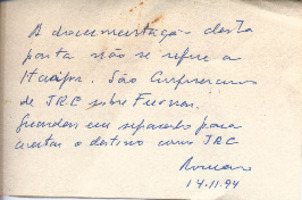 A documentação desta
pasta não se refere a
Itaipu. São
de JRC sobre Furnas.
Guardar em separado para
acertar o destino com JRC
Romano
14.11.94